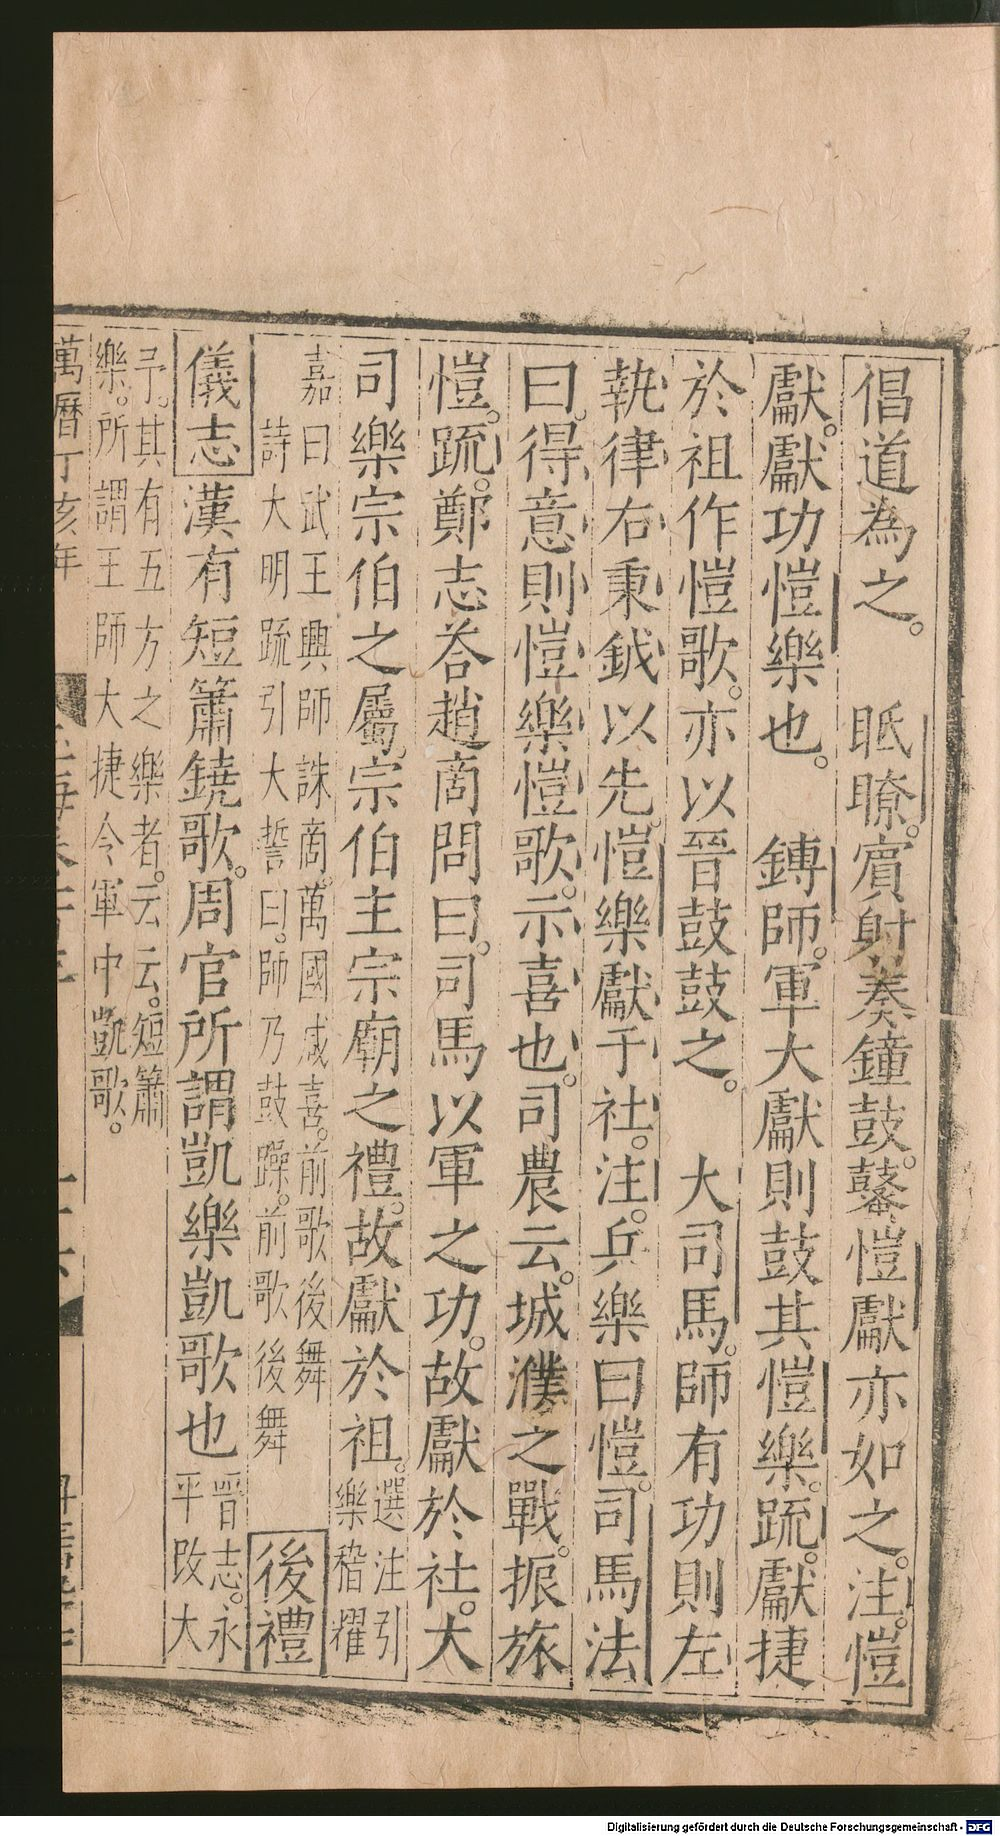 倡道為之。　眂瞭。賔射奏鐘鼓。鼜愷獻亦如之。注。愷
獻。獻功愷樂也。　鎛師。軍大獻則鼓其愷樂。䟽。獻捷
於祖作愷歌。亦以晉鼓鼓之。　大司馬。師有功則左
執律右秉鉞以先。愷樂獻于社。注。兵樂曰愷。司馬法
曰。得意則愷樂愷歌。示喜也。司農云。城濮之戰。振旅
愷。䟽。鄭志荅趙商問曰。司馬以軍之功。故獻於社。大
司樂宗伯之屬。宗伯主宗廟之禮。故獻於祖。選注引
樂稽耀
嘉曰武王興師誅商。萬國咸喜。前歌後舞
詩大明䟽引大誓曰。師乃鼓躁。前歌後舞　後禮
儀志漢有短簫鐃歌。周官所謂凱樂凱歌也晉志。永
平改大
予。其有五方之樂者。云云。短簫
樂。所謂王師大捷令軍中凱歌。
萬曆丁亥年
Digitalisierung gefördert durch die Deutsche Forschungsgemeinschaft - DFG